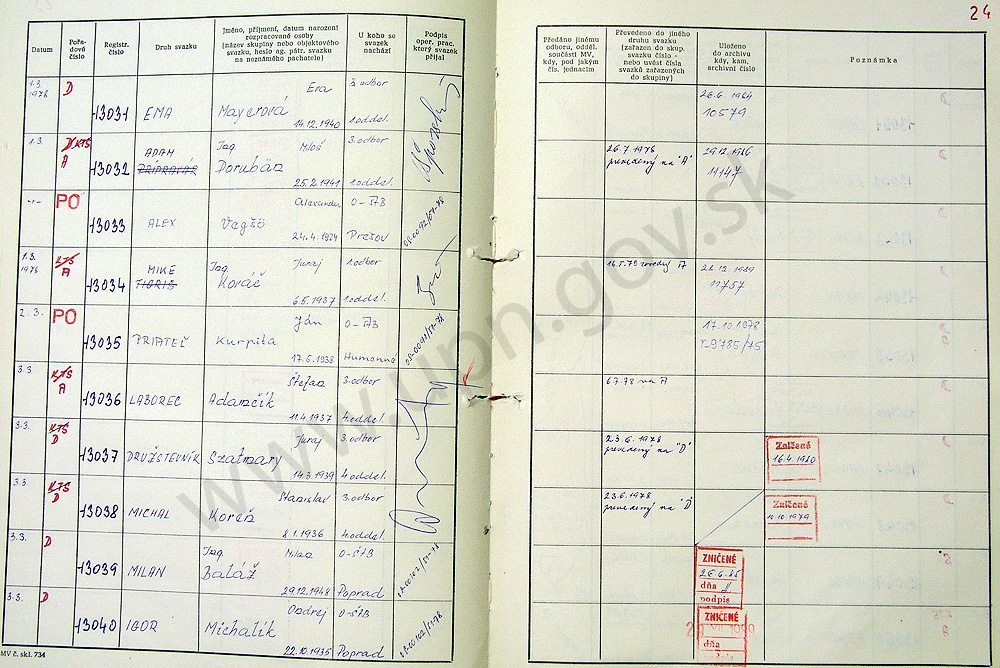 24
Datum
Pořa-
dové
číslo
Registr.
číslo
Druh svazku
Jméno, příjmení, datum narození
rozpracované osoby
(název skupiny nebo objektového
svazku, heslo ag. pátr. svazku
na neznámého pachatele)
U koho se
svazek
nachází
Podpis
oper. prac.
který svazek
přijal
Předáno jinému
odboru, odděl.
součásti MV,
kdy, pod jakým
čís. jednacím
Převedeno do jiného
druhu svazku
(zařazen do skup.
svazku číslo -
nebo uvést čísla
svazků zařazených
do skupiny)
Uloženo
do archivu
kdy, kam,
archivní číslo
Poznámka
1.3.
1978
D
13031
EMA
Eva
Mayerová
14.12.1940
3. odbor
1.oddel.
26.6.1984
10579
1.3.
KTS
A
13032
ADAM
Ing. Miloš
Dorubán
25.2.1941
3. odbor
1.oddel.
26.7.1978
prevedený na "A"
29.12.1986
11147
-"-
PO
13033
ALEX
Alexander
Vegšö
24.4.1924
O-ŠtB
Prešov
1.3.
1978
KTS
A
13034
MIKE
TIGRIS
Ing. Juraj
Koráč
6.5.1937
1.odbor
1.oddel.
11757
2.3.
PO
13035
PRIATEĽ
Ján
Kurpita
17.6.1938
O-ŠtB
Humenné
17.10.1978
T-9785/75
3.3
KTS
A
13036
LABOREC
Štefan
Adamčík
11.4.1937
3.odbor
4.oddel.
6.7.78 na A
3.3.
KTS
D
13037
DRUŽSTEVNÍK
Juraj
Szatmary
14.3.1939
3.odbor
4.oddel.
23.6.1978
prevedený na "D"
Zničené
16.4.1980
3.3
KTS
D
13038
MICHAL
Stanislav
Koreň
8.1.1936
3.odbor
4.oddel.
23.6.1978
prevedený na "D"
Zničené
3.3.
D
13039
MILAN
Ing. Milan
Baláž
29.12.1948
O-ŠtB
Poprad
ZNIČENÉ
26.6.85
dňa
podpis
3.3.
D
13040
IGOR
Ondrej
Michalik
22.10.1935
O-ŠtB
Poprad
ZNIČENÉ
dňa
MV č. skl. 734
www.upn.gov.sk